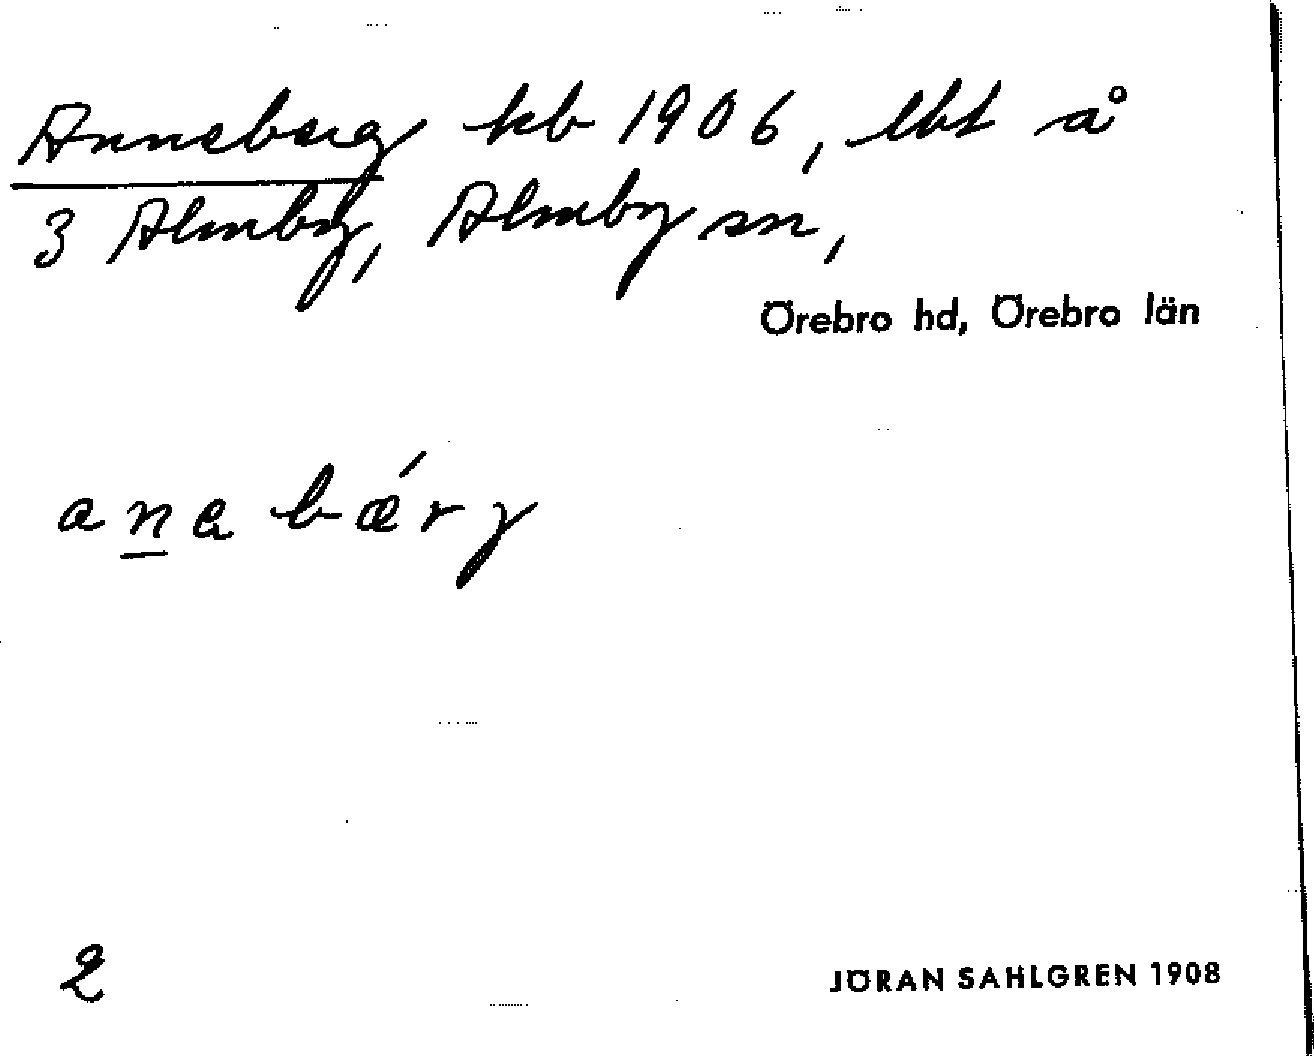 Anneberg kb 1906, lht å
3 Almby, Almby sn,
Örebro hd, Örebro län
anabǽrγ
2
JÖRAN SAHLGREN 1908